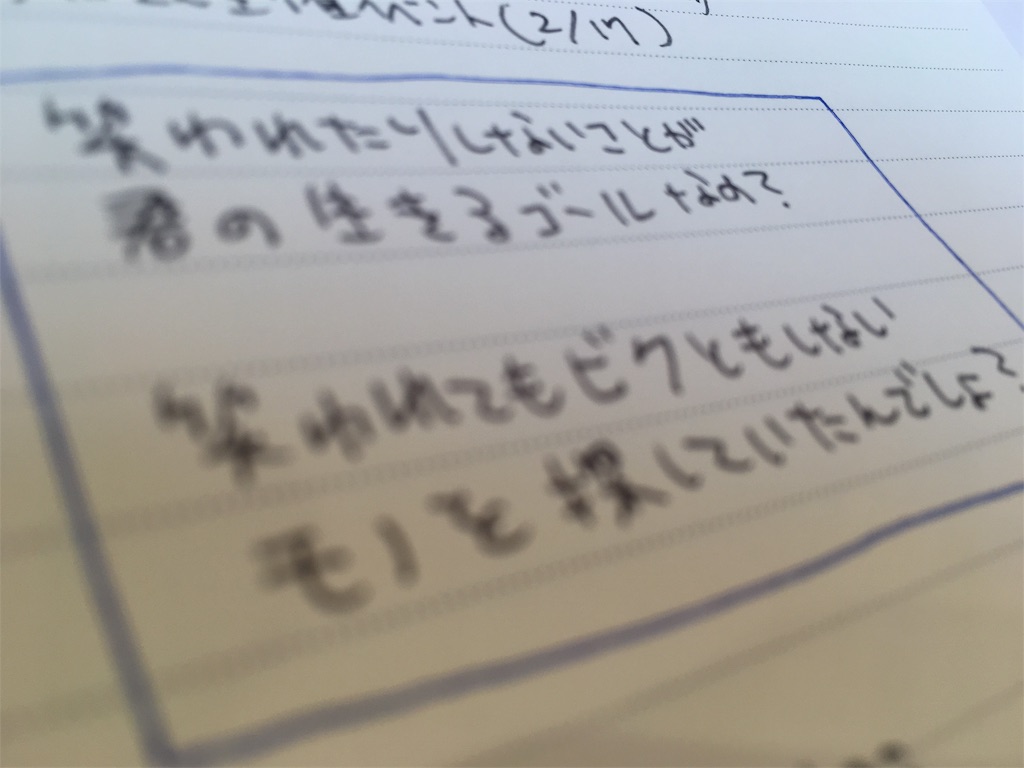 イベント(2/17)
笑われたりしないことが
君の生きるゴールなの?
笑われてもビクともしない
モノを探していたんでしょ?